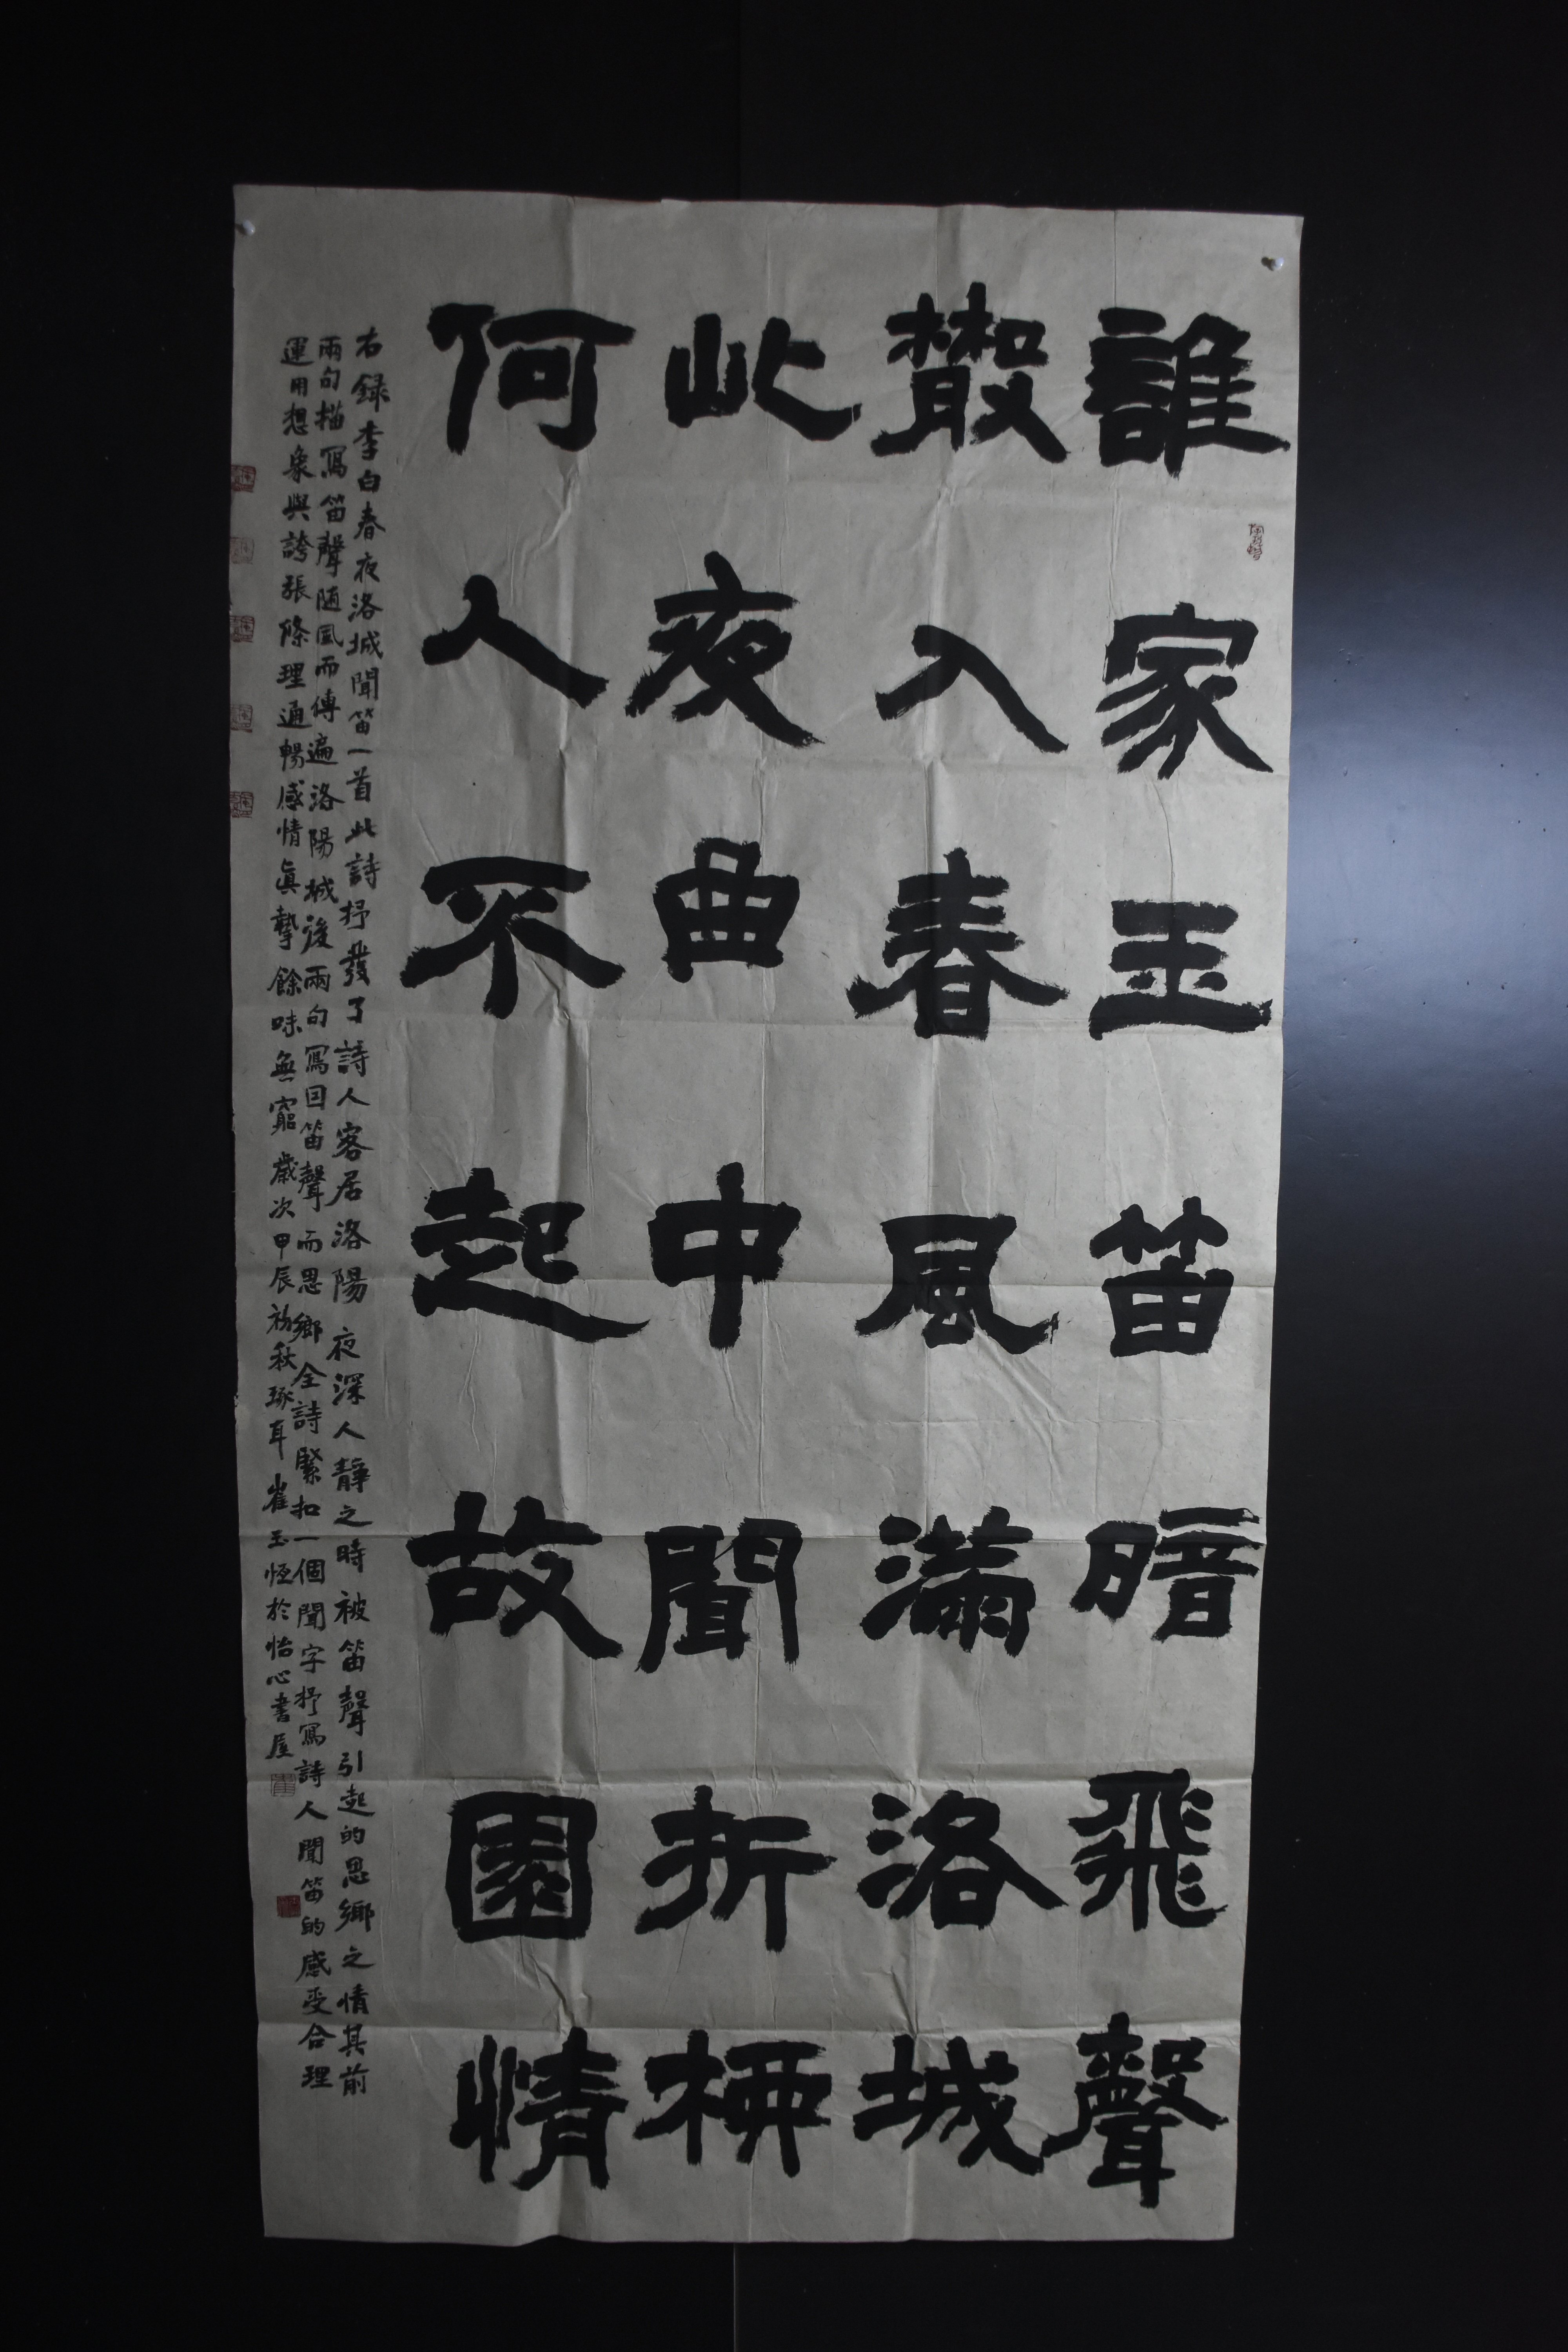 誰家玉笛暗飛聲
散入春風滿洛城
此夜曲中聞折柳
何人不起故園情
右録李白春夜洛城聞笛一首此詩抒發了詩人客居洛陽夜深人靜之時被笛聲引起的思鄉之情其前
兩句描寫笛聲随風而傳遍洛陽城後兩句寫因笛聲而思鄉全詩緊扣一個聞字抒寫詩人聞笛的感受合理
運用想象與誇張條理通暢感情真摯餘味無窮歲次甲辰初秋琢耳崔玉恆於怡心書屋